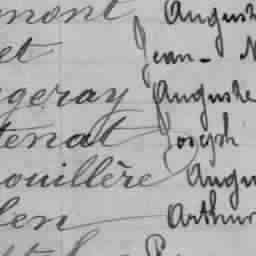 mont Auguste
et Jean-
geray Auguste
tenat Joseph
ouillère Augu
len Arthur